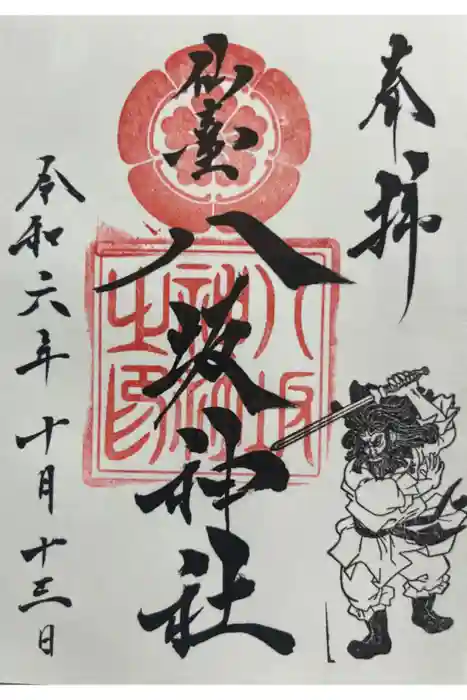 奉拝
仙臺
八坂神社
八坂神社之印
令和六年十月十三日